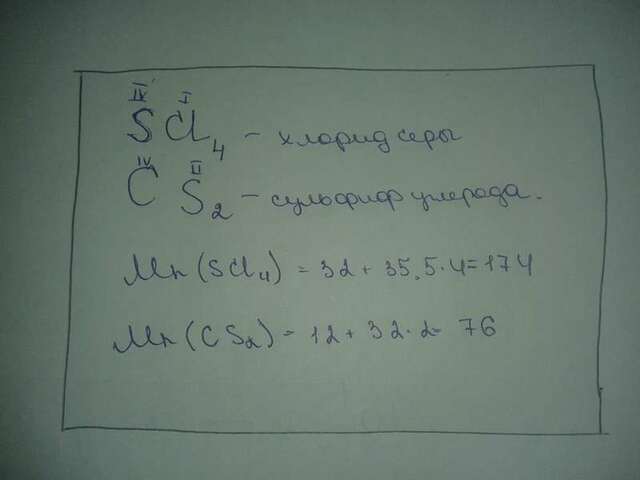 IV I
SCl4 – хлорид серы
IV II
CS2 – сульфид углерода.
Mr(SCl4) = 32 + 35,5·4=174
Mr(CS2) = 12 + 32·2= 76